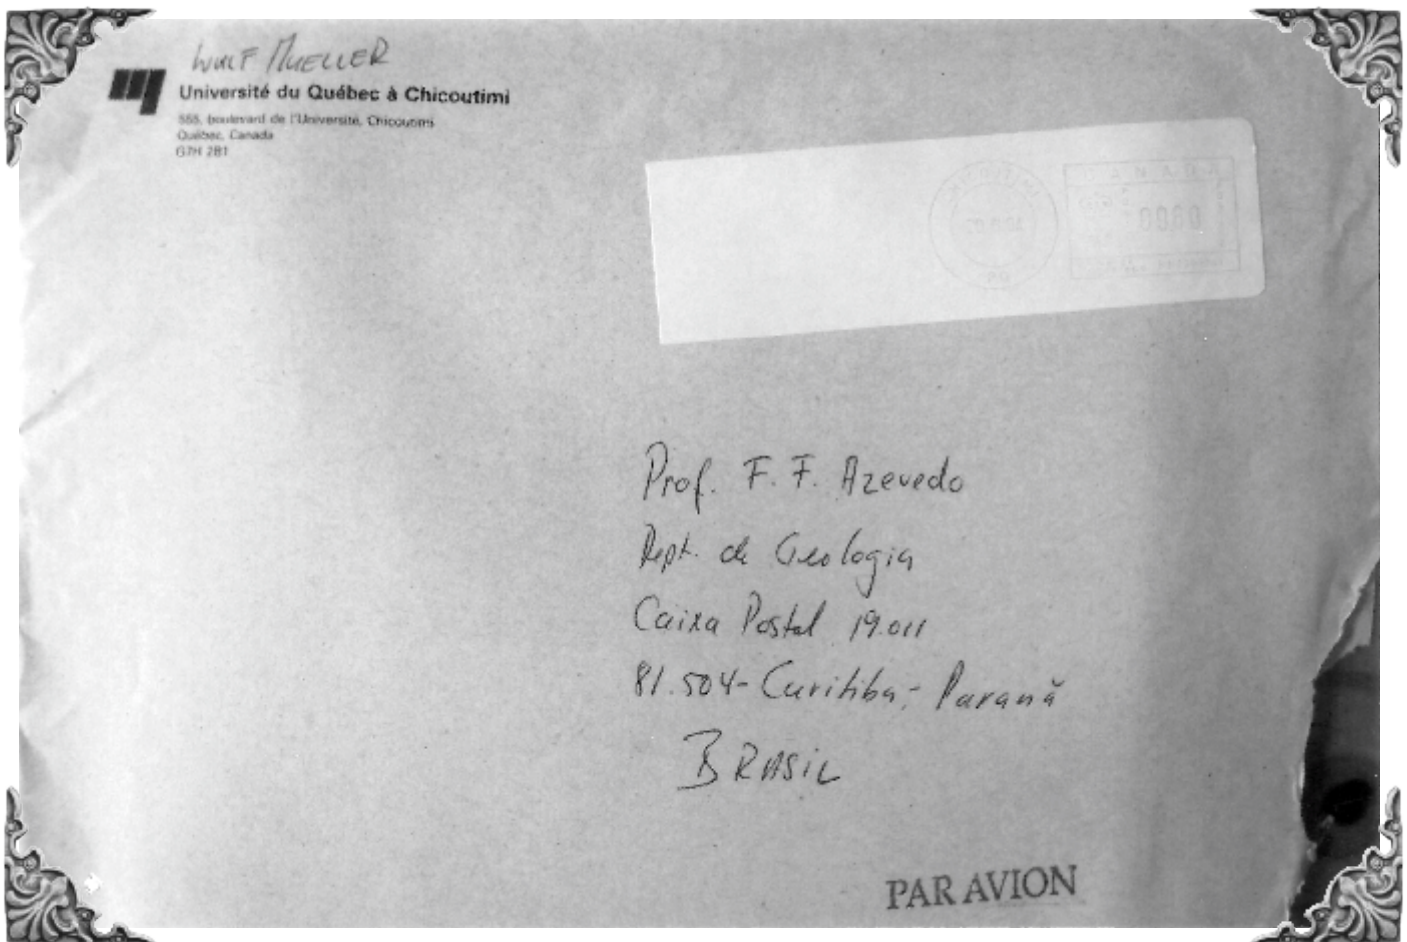 WULF MUELLER
Université du Québec à Chicoutimi
555, boulevard de l'Université, Chicoutimi
Québec, Canada
G7H 2B1
CANADA
0800
Prof. F. F. Azevedo
Dept. de Geologia
Caixa Postal 19.011
81.504- Curitiba,- Paranã
BRASIL
PAR AVION